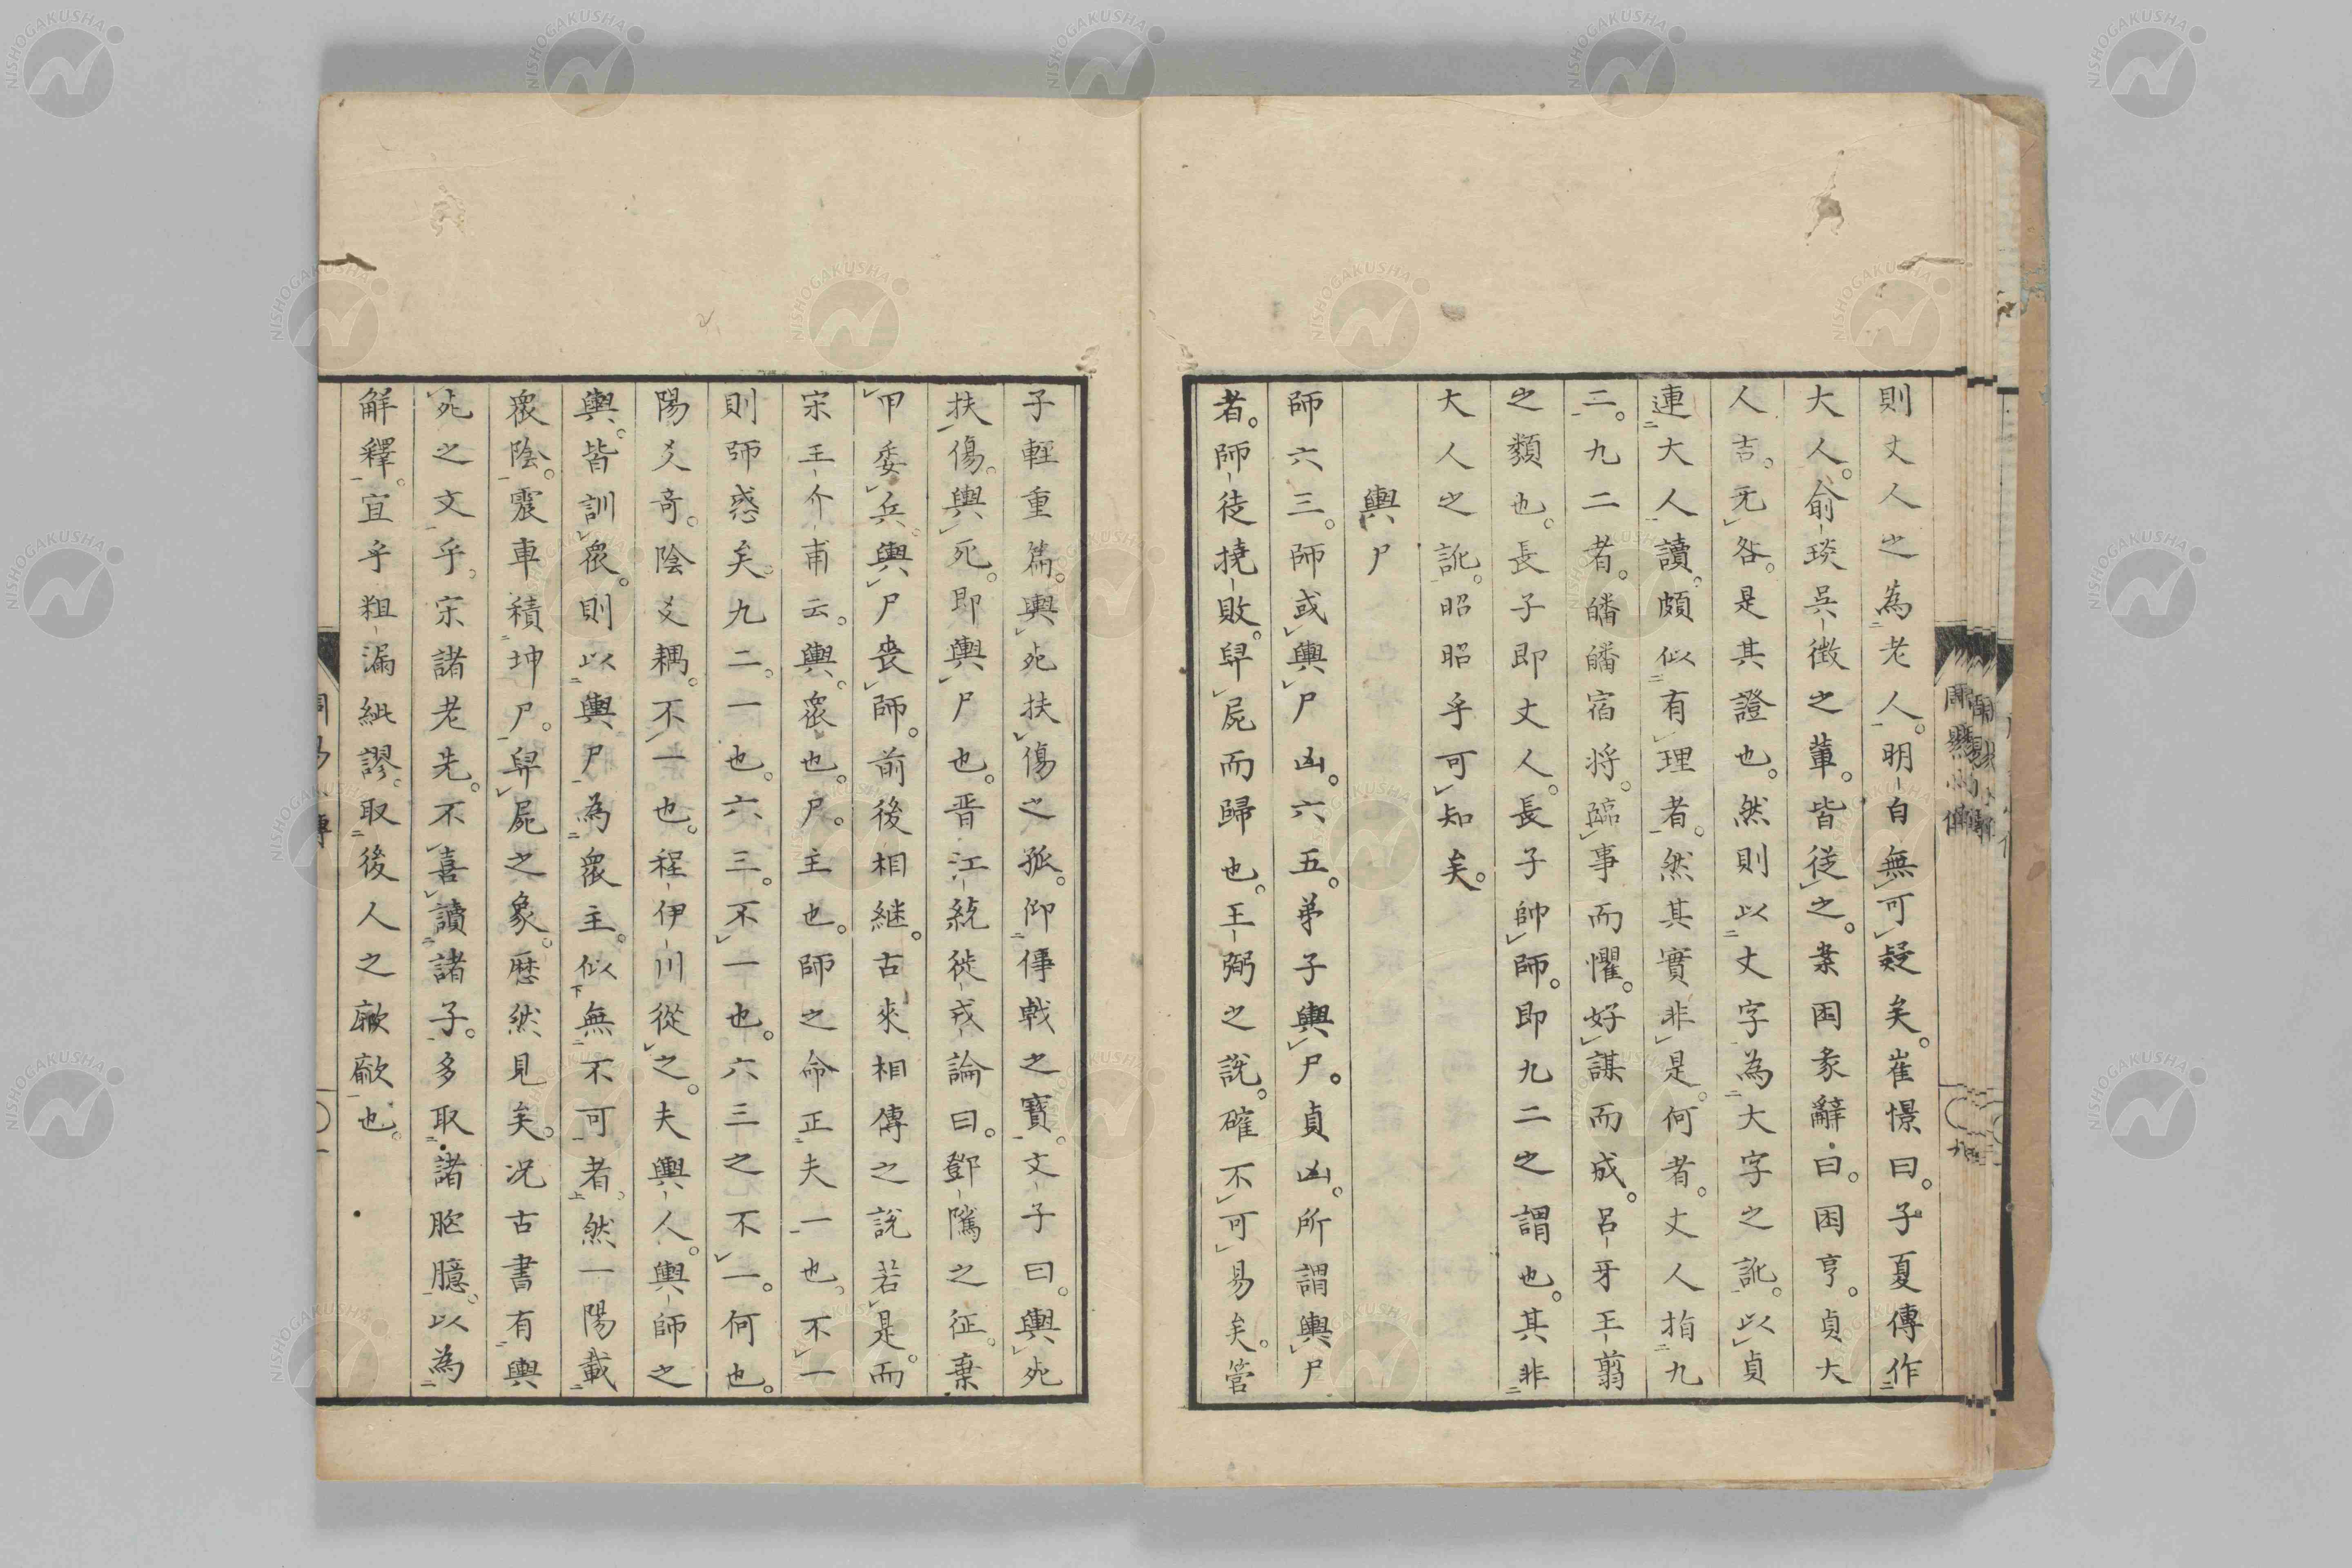 則丈人之為老人。明白無可疑矣。崔憬曰。子夏傳作
大人。俞琰吳徴之輩。皆從之。案困彖辭曰。困亨。貞大
人吉。无咎。是其證也。然則以丈字為大字之訛。以貞
連大人讀。頗似有理者。然其實非是。何者。丈人指九
二。九二者。皤皤宿将。臨事而懼。好謀而成。呂牙王翦
之類也。長子即丈人。長子帥師。即九二之謂也。其非
大人之訛。昭昭乎可知矣。
輿尸
師六三。師或輿尸凶。六五。弟子輿尸。貞凶。所謂輿尸
者。師徒撓敗。舁屍而歸也。王弼之說。確不可易矣。管
子輕重篇。輿死扶傷之孤。仰倳戟之寶。文子曰。輿死
扶傷。輿死。即輿尸也。晋江統徙戎論曰。鄧隲之征。棄
甲委兵。輿尸喪師。前後相継。古來相傳之說若是。而
宋王介甫云。輿。衆也。尸。主也。師之命正夫一也。不一
則師惑矣。九二。一也。六三。不一也。六三之不一。何也。
陽爻奇。陰爻耦。不一也。程伊川從之。夫輿人。輿師之
輿。皆訓衆。則以輿尸為衆主。似無不可者。然一陽載
衆陰。震車積坤尸。舁屍之象。歴然見矣。况古書有輿
死之文乎。宋諸老先。不喜讀諸子。多取諸胸臆。以為
解釋。宜乎粗漏紕謬。取後人之歒歒也。